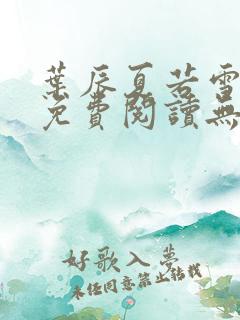 葉辰夏若雪
免費閱讀無
好歌入夢
未经同意禁止转载